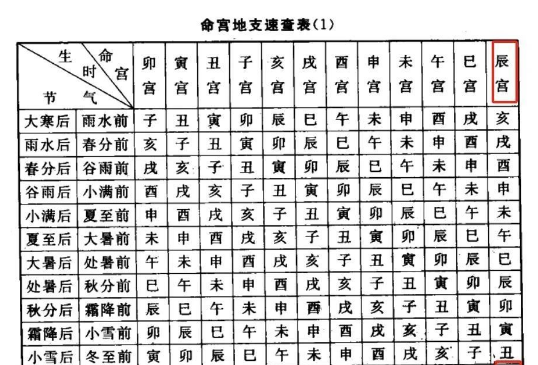 命宫地支速查表(1)
生时 命宫 节气 卯宫 寅宫 丑宫 子宫 亥宫 戌宫 酉宫 申宫 未宫 午宫 巳宫 辰宫
大寒后 雨水前 子 丑 寅 卯 辰 巳 午 未 申 酉 戌 亥
雨水后 春分前 亥 子 丑 寅 卯 辰 巳 午 未 申 酉 戌
春分后 谷雨前 戌 亥 子 丑 寅 卯 辰 巳 午 未 申 酉
谷雨后 小满前 酉 戌 亥 子 丑 寅 卯 辰 巳 午 未 申
小满后 夏至前 申 酉 戌 亥 子 丑 寅 卯 辰 巳 午 未
夏至后 大暑前 未 申 酉 戌 亥 子 丑 寅 卯 辰 巳 午
大暑后 处暑前 午 未 申 酉 戌 亥 子 丑 寅 卯 辰 巳
处暑后 秋分前 巳 午 未 申 酉 戌 亥 子 丑 寅 卯 辰
秋分后 霜降前 辰 巳 午 未 申 酉 戌 亥 子 丑 寅 卯
霜降后 小雪前 卯 辰 巳 午 未 申 酉 戌 亥 子 丑 寅
小雪后 冬至前 寅 卯 辰 巳 午 未 申 酉 戌 亥 子 丑